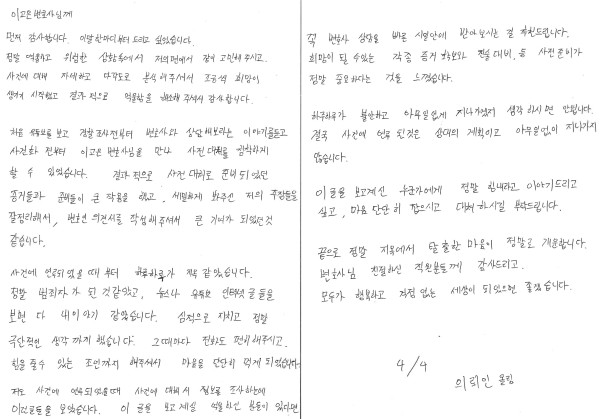 이고은 변호사님께
먼저 감사합니다. 이말 한마디부터 드리고 싶었습니다.
정말 예측하고 위험한 상황속에서 저의편에서 같이 고민해주시고.
사건에 대해 자세하고 다각도로 분석해주셔서 조금씩 희망이
생겨 시작했고 결과적으로 억울함을 해소해 주셔서 감사합니다.
처음 유튜브를 보고 경찰조사전부터 변호사와 상담해보라는 이야기를듣고
사건화 전부터 이고은 변호사님을 만나 사전대처를 완벽하게
할 수 있었습니다. 결과적으로 사전 대처로 준비되있던
증거들과 녹취들이 큰 작용을 했고, 세밀하게 봐주신 저의 주장들을
잘정리해서, 변호인 의견서를 작성해주셔서 큰 기여가 되었던것
같습니다.
사건에 연루되있을 때부터 하루하루가 지옥 같았습니다.
정말 범죄자가 된 것같았고, 뉴스나 유튜브 인터넷 글들을
보면 다 내이야기 같았습니다. 심적으로 지치고 정말
극단적인 생각까지 했습니다. 그때마다 전화도 편히해주시고.
힘을줄수 있는 조언까지 해주셔서 마음을 단단히 먹게되었습니다
저도 사건에 연루되있을때 사건에 대해서 정보를 조사하는데
이런글들을 보았습니다. 이 글을 보고계실 억울하신 분들이 있다면
꼭 변호사 상담을 빠른 시일안에 받아보시는 걸 추천드립니다.
희망이 될 수있는 각종 증거 확보와 진술대비, 등 사전준비가
정말 중요하다는 것을 느꼈습니다.
하루하루가 불안하고 아무일없게 지나가겠지 생각 하시면 안됩니다.
결국 사건에 연루 된것은 상대의 계획이고 아무일없이 지나가지
않습니다.
이 글을 보고계신 누군가에게 정말 힘내라고 이야기드리고
싶고, 마음 단단히 잡으시고 대처하시길 부탁드립니다.
끝으로 정말 지옥에서 탈출한 마음이 정말로 개운합니다.
변호사님 친절하신 직원분들께 감사드리고.
모두가 행복하고 걱정 없는 세상이 되었으면 좋겠습니다.
4/4
의뢰인 올림